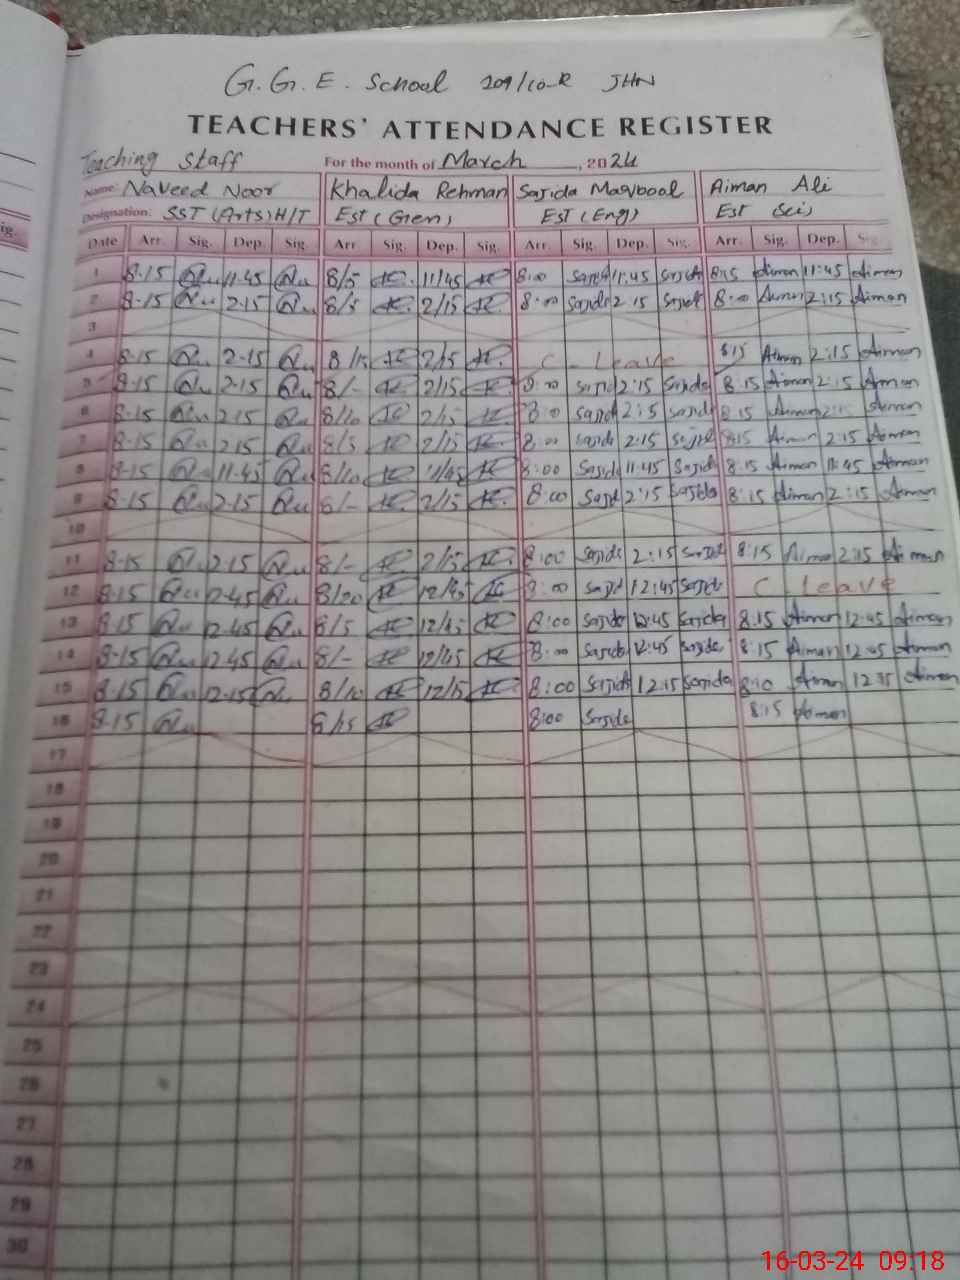 G.G.E. School 109/10-R JHN
TEACHERS' ATTENDANCE REGISTER
Teaching Staff For the month of March, 2024
Name: Naveed Noor Khalida Rehman Sajida Maqbool Aiman Ali
Designation: SST (Arts) H/T Est (Gen) Est (Eng) Est Sci
Date Arr. Sig. Dep. Sig. Arr. Sig. Dep. Sig. Arr. Sig. Dep. Sig. Arr. Sig. Dep. Sig.
1 8-15 11-45 8/5 11/45 8:00 Sajida 11:45 Sajida 8:15 Aiman 11:45 Aiman
2 8-15 2-15 8/5 2/15 8:00 Sajida 2:15 Sajida 8:00 Aiman 2:15 Aiman
3
4 8-15 2-15 8/15 2/15 C - Leave 8:15 Aiman 2:15 Aiman
5 8-15 2-15 8/- 2/15 8:00 Sajida 2:15 Sajida 8:15 Aiman 2:15 Aiman
6 8-15 2-15 8/10 2/15 8:00 Sajida 2:15 Sajida 8:15 Aiman 2:15 Aiman
7 8-15 2-15 8/5 2/15 8:00 Sajida 2:15 Sajida 8:15 Aiman 2:15 Aiman
8 8-15 11-45 8/10 11/45 8:00 Sajida 11:45 Sajida 8:15 Aiman 11:45 Aiman
9 8-15 2-15 8/- 2/15 8:00 Sajida 2:15 Sajida 8:15 Aiman 2:15 Aiman
10
11 8-15 2-15 8/- 2/15 8:00 Sajida 2:15 Sajida 8:15 Aiman 2:15 Aiman
12 8-15 12-45 8/20 12/45 8:00 Sajida 12:45 Sajida C Leave
13 8-15 12-45 8/5 12/45 8:00 Sajida 12:45 Sajida 8:15 Aiman 12:45 Aiman
14 8-15 12-45 8/- 12/45 8:00 Sajida 12:45 Sajida 8:15 Aiman 12:45 Aiman
15 8-15 12-15 8/10 12/15 8:00 Sajida 12:15 Sajida 8:10 Aiman 12:15 Aiman
16 8-15 8/15 8:00 Sajida 8:15 Aiman
17
18
19
20
21
22
23
24
25
26
27
28
29
30
16-03-24 09:18